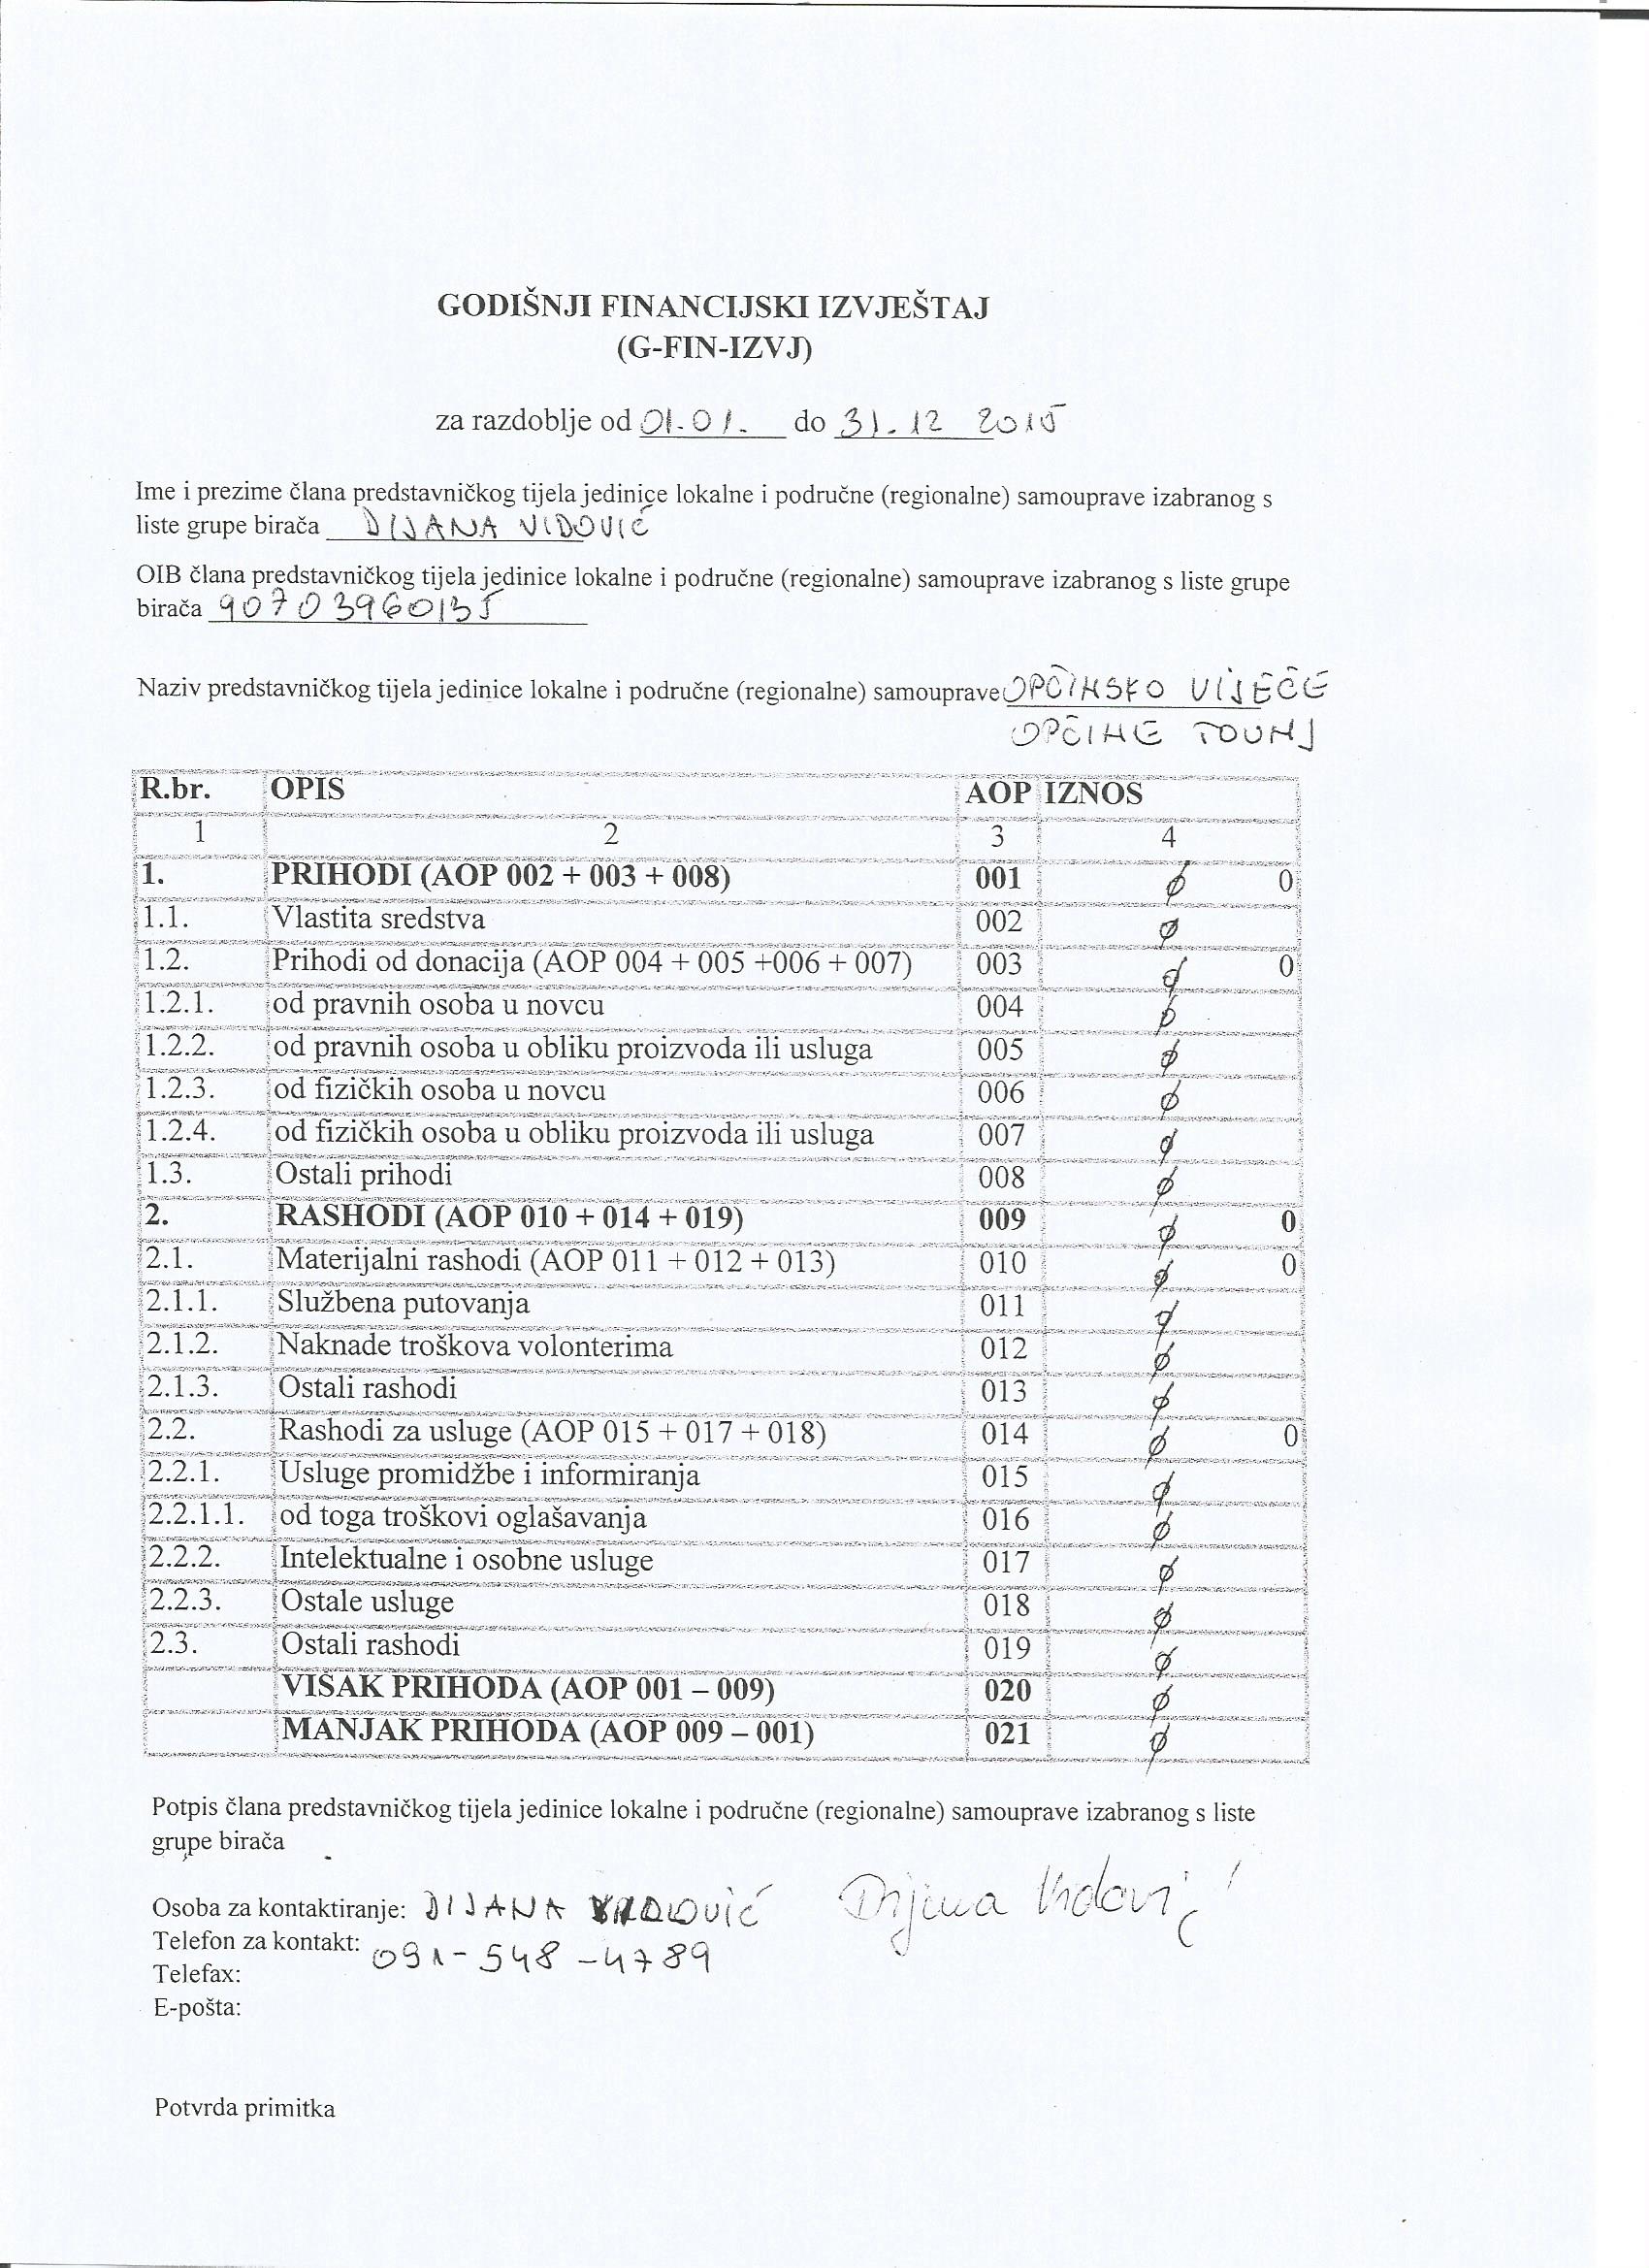 GODIŠNJI FINANCIJSKI IZVJEŠTAJ
(G-FIN-IZVJ)
za razdoblje od 01.01. do 31.12 2015
Ime i prezime člana predstavničkog tijela jedinice lokalne i područne (regionalne) samouprave izabranog s
liste grupe birača DIJANA VIDOVIĆ
OIB člana predstavničkog tijela jedinice lokalne i područne (regionalne) samouprave izabranog s liste grupe
birača 90703960135
Naziv predstavničkog tijela jedinice lokalne i područne (regionalne) samouprave OPĆINSKO VIJEĆE
OPĆINE TOUNJ
R.br. OPIS AOP IZNOS
1 2 3 4
1. PRIHODI (AOP 002 + 003 + 008) 001 ∅ 0
1.1. Vlastita sredstva 002 ∅
1.2. Prihodi od donacija (AOP 004 + 005 +006 + 007) 003 ∅ 0
1.2.1. od pravnih osoba u novcu 004 ∅
1.2.2. od pravnih osoba u obliku proizvoda ili usluga 005 ∅
1.2.3. od fizičkih osoba u novcu 006 ∅
1.2.4. od fizičkih osoba u obliku proizvoda ili usluga 007 ∅
1.3. Ostali prihodi 008 ∅
2. RASHODI (AOP 010 + 014 + 019) 009 ∅ 0
2.1. Materijalni rashodi (AOP 011 + 012 + 013) 010 ∅ 0
2.1.1. Službena putovanja 011 ∅
2.1.2. Naknade troškova volonterima 012 ∅
2.1.3. Ostali rashodi 013 ∅
2.2. Rashodi za usluge (AOP 015 + 017 + 018) 014 ∅ 0
2.2.1. Usluge promidžbe i informiranja 015 ∅
2.2.1.1. od toga troškovi oglašavanja 016 ∅
2.2.2. Intelektualne i osobne usluge 017 ∅
2.2.3. Ostale usluge 018 ∅
2.3. Ostali rashodi 019 ∅
VIŠAK PRIHODA (AOP 001 – 009) 020 ∅
MANJAK PRIHODA (AOP 009 – 001) 021 ∅
Potpis člana predstavničkog tijela jedinice lokalne i područne (regionalne) samouprave izabranog s liste
grupe birača
Osoba za kontaktiranje: DIJANA VIDOVIĆ Dijana Vidović
Telefon za kontakt: 091-548-4789
Telefax:
E-pošta:
Potvrda primitka